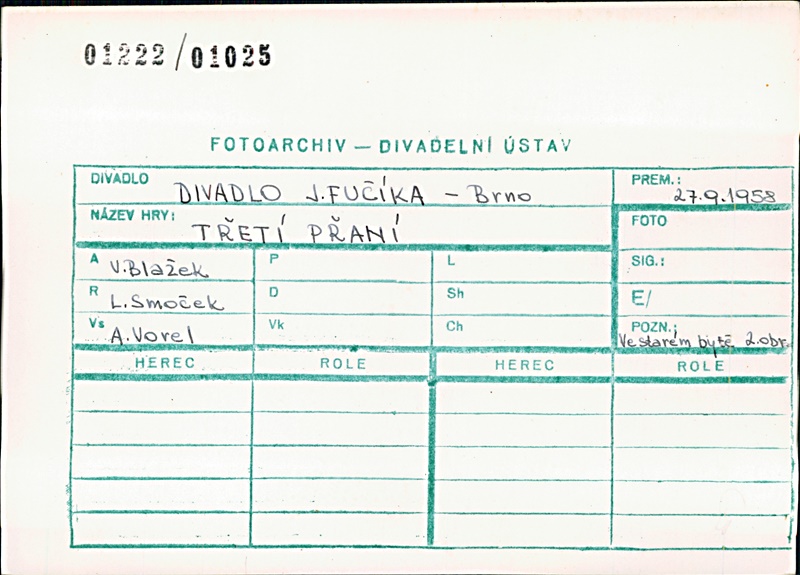 01222/01025
FOTOARCHIV – DIVADELNÍ ÚSTAV
DIVADLO DIVADLO J. FUČÍKA – Brno
PREM.: 27.9.1958
NÁZEV HRY: TŘETÍ PŘANÍ
FOTO
A V. Blažek P L SIG.:
R L. Smoček D Sh E/
Vs A. Vorel Vk Ch POZN.: Ve starém bytě 2. obr.
HEREC ROLE HEREC ROLE